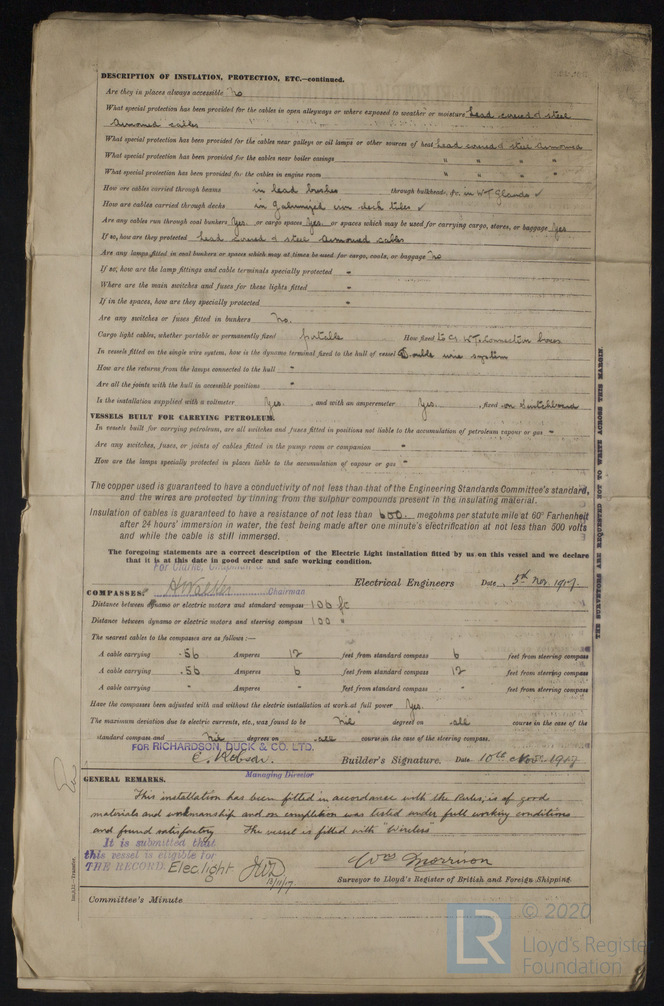 DESCRIPTION OF INSULATION, PROTECTION, ETC.—continued.
Are they in places always accessible No
What special protection has been provided for the cables in open alleyways or where exposed to weather or moisture lead covered & steel
armoured cables
What special protection has been provided for the cables near galleys or oil lamps or other sources of heat lead covered & steel armoured
What special protection has been provided for the cables near boiler casings " " " "
What special protection has been provided for the cables in engine room " " " "
How are cables carried through beams in lead bushes through bulkheads, &c. in W.T. Glands ✓
How are cables carried through decks in galvanized iron deck tubes ✓
Are any cables run through coal bunkers Yes or cargo spaces Yes or spaces which may be used for carrying cargo, stores, or baggage Yes
If so, how are they protected lead covered & steel armoured cables
Are any lamps fitted in coal bunkers or spaces which may at times be used for cargo, coals, or baggage No
If so, how are the lamp fittings and cable terminals specially protected "
Where are the main switches and fuses for these lights fitted "
If in the spaces, how are they specially protected "
Are any switches or fuses fitted in bunkers No.
Cargo light cables, whether portable or permanently fixed portable How fixed to W.T. connection boxes
In vessels fitted on the single wire system, how is the dynamo terminal fixed to the hull of vessel Double wire system
How are the returns from the lamps connected to the hull "
Are all the joints with the hull in accessible positions "
Is the installation supplied with a voltmeter Yes. , and with an amperemeter Yes. , fixed on Switchboard
VESSELS BUILT FOR CARRYING PETROLEUM.
In vessels built for carrying petroleum, are all switches and fuses fitted in positions not liable to the accumulation of petroleum vapour or gas "
Are any switches, fuses, or joints of cables fitted in the pump room or companion "
How are the lamps specially protected in places liable to the accumulation of vapour or gas "
The copper used is guaranteed to have a conductivity of not less than that of the Engineering Standards Committee's standard,
and the wires are protected by tinning from the sulphur compounds present in the insulating material.
Insulation of cables is guaranteed to have a resistance of not less than 600 megohms per statute mile at 60° Fahrenheit
after 24 hours' immersion in water, the test being made after one minute's electrification at not less than 500 volts
and while the cable is still immersed.
The foregoing statements are a correct description of the Electric Light installation fitted by us on this vessel and we declare
that it is at this date in good order and safe working condition.
For Clarke, Chapman &
Chairman Electrical Engineers Date 5th Nov. 1917.
COMPASSES.
Distance between dynamo or electric motors and standard compass 106 ft
Distance between dynamo or electric motors and steering compass 100 "
The nearest cables to the compasses are as follows:—
A cable carrying .56 Amperes 12 feet from standard compass 6 feet from steering compass
A cable carrying .56 Amperes 6 feet from standard compass 12 feet from steering compass
A cable carrying " Amperes " feet from standard compass " feet from steering compass
Have the compasses been adjusted with and without the electric installation at work at full power Yes.
The maximum deviation due to electric currents, etc., was found to be Nil degrees on all course in the case of the
standard compass and Nil degrees on all course in the case of the steering compass.
FOR RICHARDSON, DUCK & CO. LTD.
Builder's Signature. Date 10th Nov. 1917
Managing Director
GENERAL REMARKS.
This installation has been fitted in accordance with the Rules, is of good
materials and workmanship and on completion was tested under full working conditions
and found satisfactory The vessel is fitted with "Wireless
It is submitted that
this vessel is eligible for
THE RECORD. Elec light JWD 13/11/17
Wm Morrison
Surveyor to Lloyd's Register of British and Foreign Shipping.
Committee's Minute
THE SURVEYORS ARE REQUESTED NOT TO WRITE ACROSS THIS MARGIN.
LR
© 2020
Lloyd's Register
Foundation